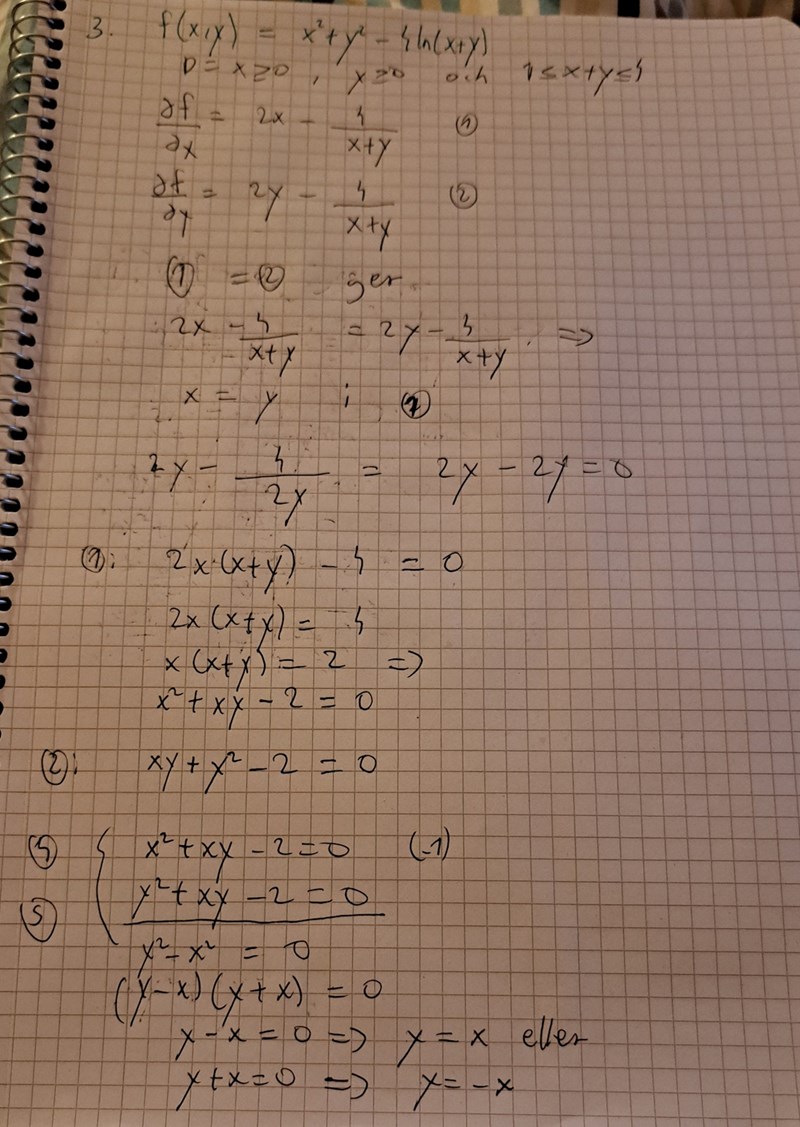 3. f(x,y) = x² + y² - 4 ln(x+y)
D = x ≥ 0 , y ≥ 0 och 1 ≤ x+y ≤ 4
∂f/∂x = 2x - 4/(x+y) ①
∂f/∂y = 2y - 4/(x+y) ②
① = ② ger
2x - 4/(x+y) = 2y - 4/(x+y) . =>
x = y i ②
2y - 4/2y = 2y - 2y = 0
①: 2x·(x+y) - 4 = 0
2x(x+y) = 4
x(x+y) = 2 =>
x² + xy - 2 = 0
②: xy + y² - 2 = 0
④ { x² + xy - 2 = 0 (-1)
⑤ y² + xy - 2 = 0
y² - x² = 0
(y-x)(y+x) = 0
y - x = 0 => y = x eller
y + x = 0 => y = -x